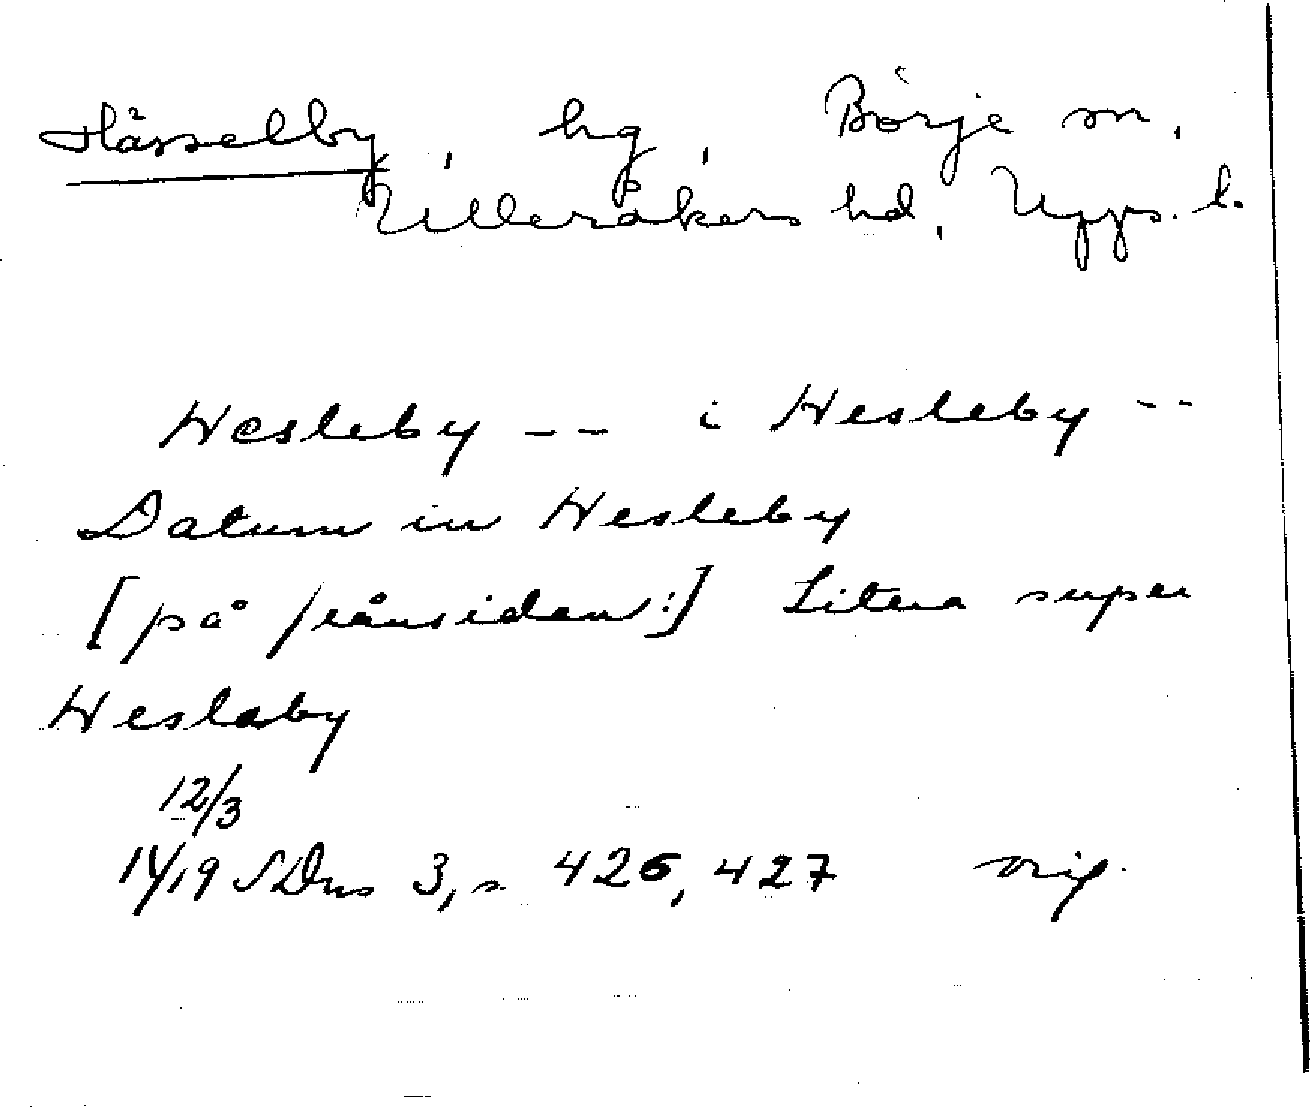 Hässelby, hg, Börje sn,
Ulleråkers hd, Upps. l.
Hesleby -- i Hesleby --
Datum in Hesleby
[på frånsidan:] Litera super
Heslaby
12/3
1419 SDns 3, s 426, 427 orig.